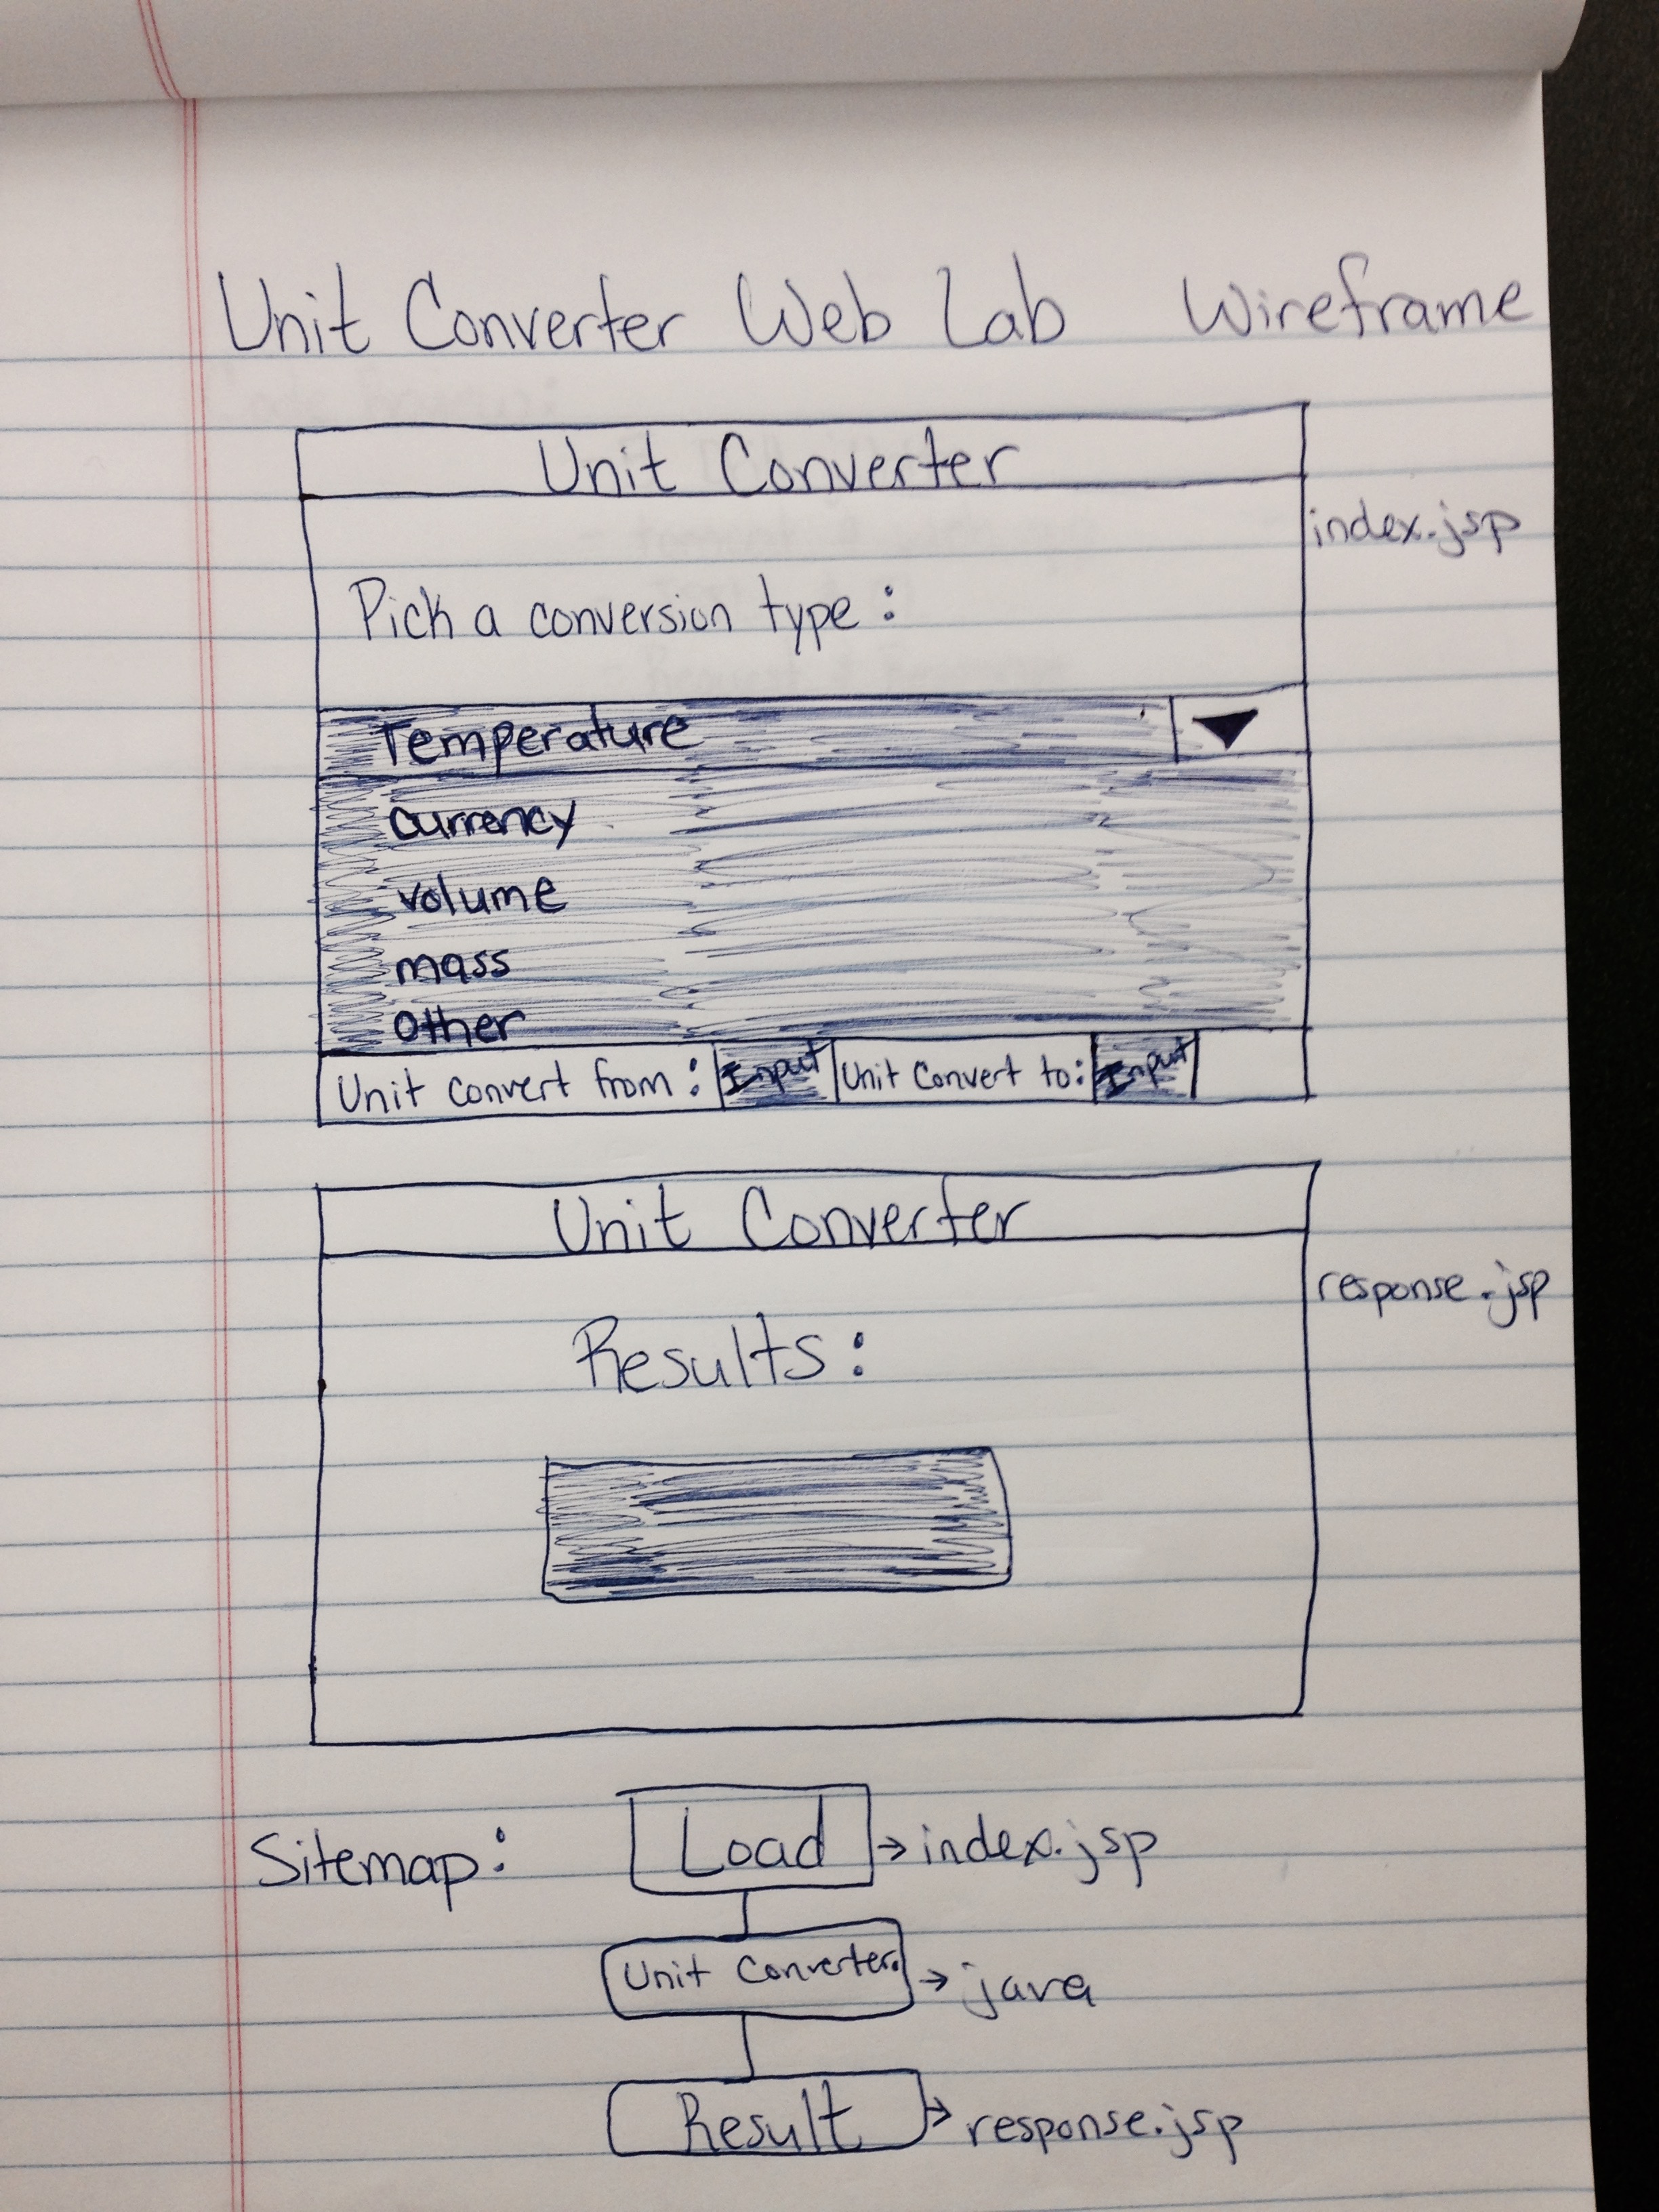 Unit Converter Web Lab Wireframe
Unit Converter
index.jsp
Pick a conversion type :
Temperature
currency
volume
mass
other
Unit convert from : Input Unit Convert to: Input
Unit Converter
response.jsp
Results :
Sitemap: Load → index.jsp
Unit Converter. → java
Result → response.jsp